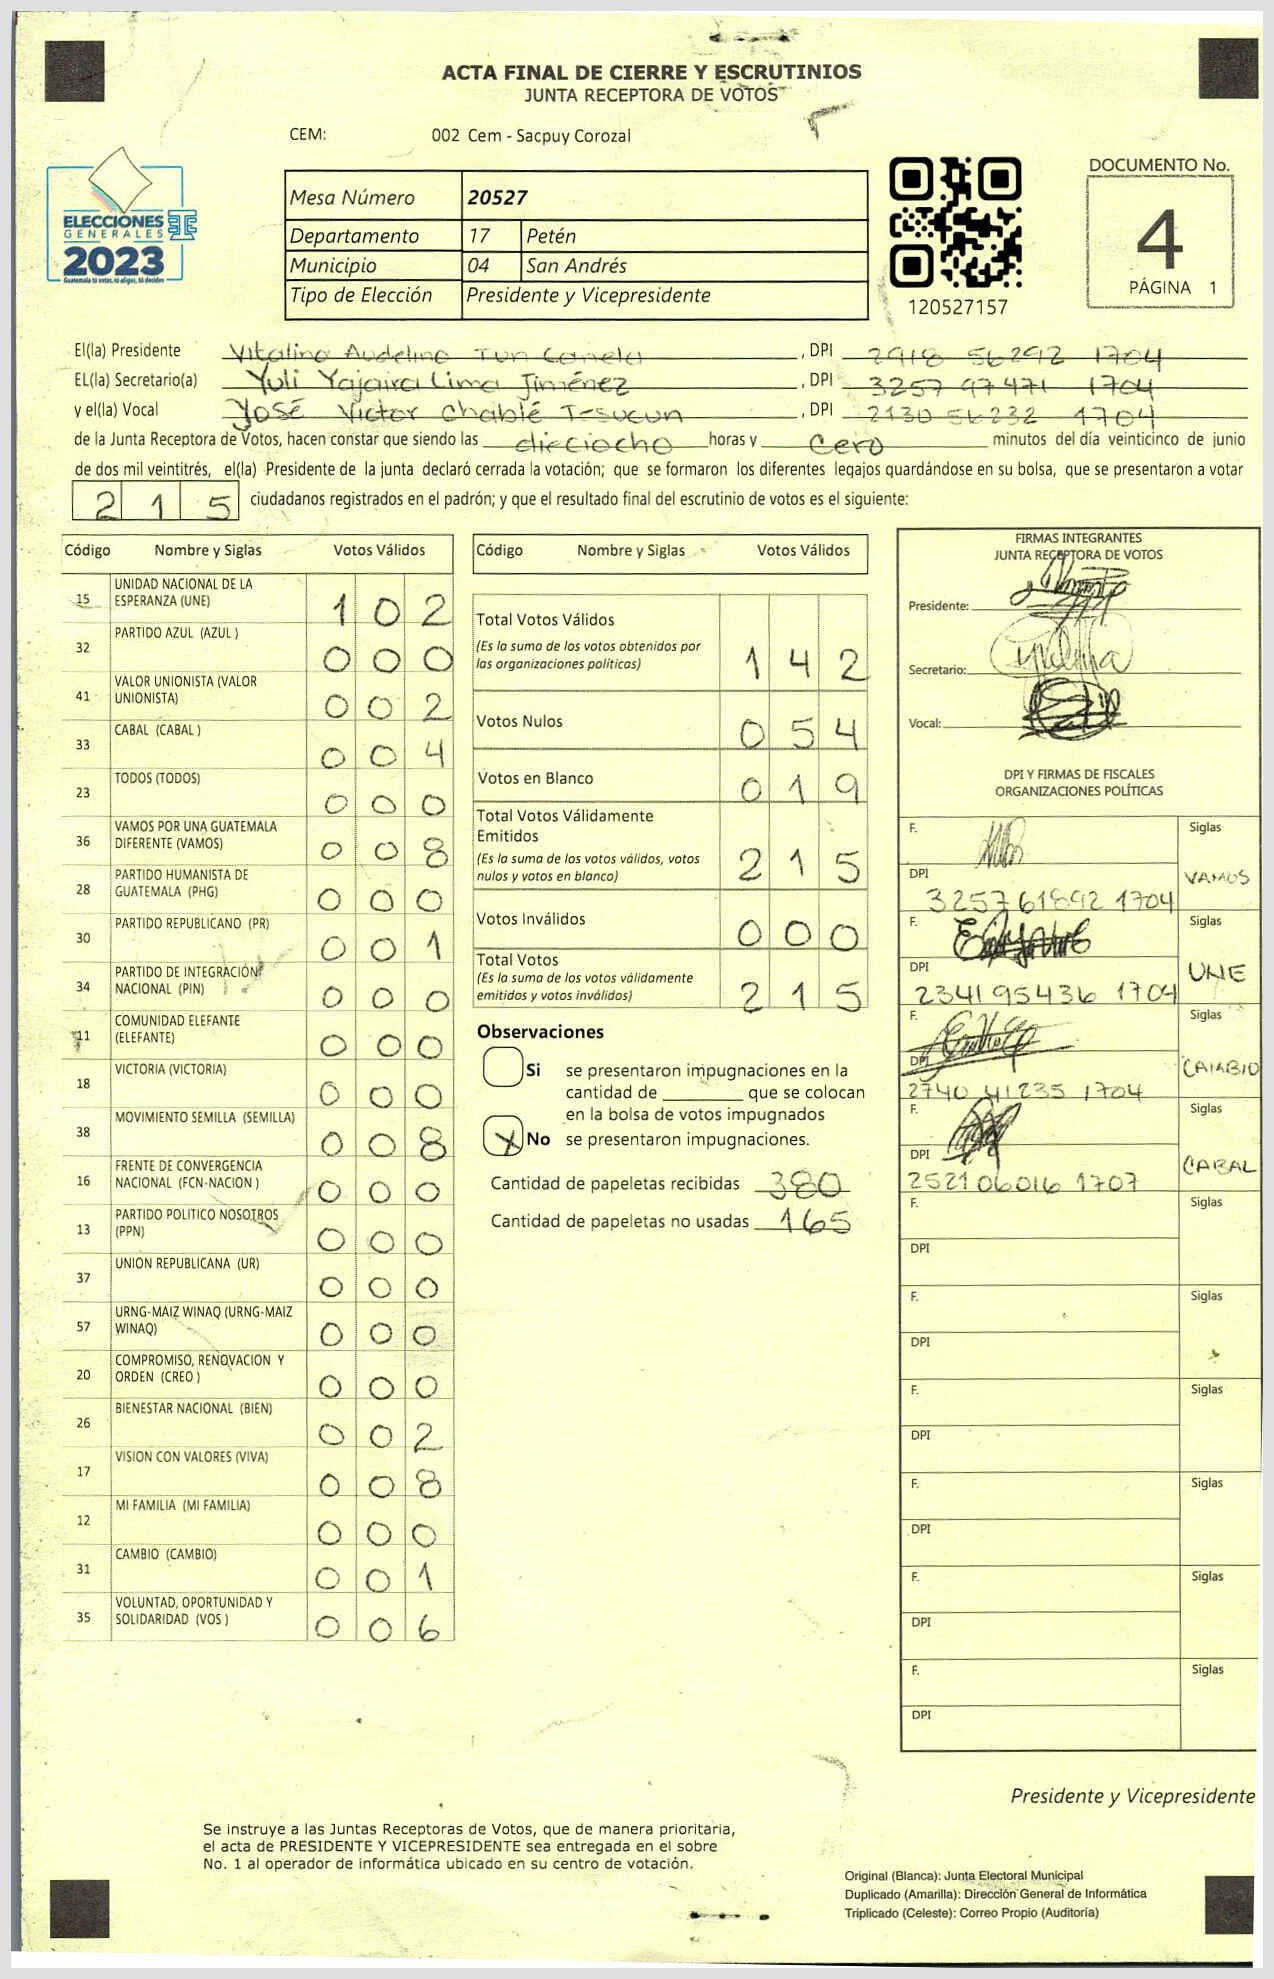 ACTA FINAL DE CIERRE Y ESCRUTINIOS
JUNTA RECEPTORA DE VOTOS
CEM: 002 Cem - Sacpuy Corozal
ELECCIONES
GENERALES
2023
Guatemala tú votas, tú eliges, tú decides
Mesa Número 20527
Departamento 17 Petén
Municipio 04 San Andrés
Tipo de Elección Presidente y Vicepresidente
120527157
DOCUMENTO No.
4
PÁGINA 1
El(la) Presidente Vitalino Audelino Tun Canela, DPI 2918 56292 1704
EL(la) Secretario(a) Yuli Yajaira Lima Jiménez, DPI 3257 97471 1704
y el(la) Vocal José Victor Chablé Tesucun, DPI 2130 56232 1704
de la Junta Receptora de Votos, hacen constar que siendo las dieciocho horas y cero minutos del día veinticinco de junio
de dos mil veintitrés, el(la) Presidente de la junta declaró cerrada la votación; que se formaron los diferentes legajos quardándose en su bolsa, que se presentaron a votar
215 ciudadanos registrados en el padrón; y que el resultado final del escrutinio de votos es el siguiente:
Código Nombre y Siglas Votos Válidos
15 UNIDAD NACIONAL DE LA
ESPERANZA (UNE) 102
32 PARTIDO AZUL (AZUL ) 000
41 VALOR UNIONISTA (VALOR
UNIONISTA) 002
33 CABAL (CABAL ) 004
23 TODOS (TODOS) 000
36 VAMOS POR UNA GUATEMALA
DIFERENTE (VAMOS) 008
28 PARTIDO HUMANISTA DE
GUATEMALA (PHG) 000
30 PARTIDO REPUBLICANO (PR) 001
34 PARTIDO DE INTEGRACIÓN
NACIONAL (PIN) 000
11 COMUNIDAD ELEFANTE
(ELEFANTE) 000
18 VICTORIA (VICTORIA) 000
38 MOVIMIENTO SEMILLA (SEMILLA) 008
16 FRENTE DE CONVERGENCIA
NACIONAL (FCN-NACION ) 000
13 PARTIDO POLITICO NOSOTROS
(PPN) 000
37 UNION REPUBLICANA (UR) 000
57 URNG-MAIZ WINAQ (URNG-MAIZ
WINAQ) 000
20 COMPROMISO, RENOVACION Y
ORDEN (CREO ) 000
26 BIENESTAR NACIONAL (BIEN) 002
17 VISION CON VALORES (VIVA) 008
12 MI FAMILIA (MI FAMILIA) 000
31 CAMBIO (CAMBIO) 001
35 VOLUNTAD, OPORTUNIDAD Y
SOLIDARIDAD (VOS ) 006
Código Nombre y Siglas Votos Válidos
Total Votos Válidos
(Es la suma de los votos obtenidos por
las organizaciones políticas) 142
Votos Nulos 054
Votos en Blanco 019
Total Votos Válidamente
Emitidos
(Es la suma de los votos válidos, votos
nulos y votos en blanco) 215
Votos Inválidos 000
Total Votos
(Es la suma de los votos válidamente
emitidos y votos inválidos) 215
Observaciones
Si se presentaron impugnaciones en la
cantidad de ________ que se colocan
en la bolsa de votos impugnados
X No se presentaron impugnaciones.
Cantidad de papeletas recibidas 380
Cantidad de papeletas no usadas 165
FIRMAS INTEGRANTES
JUNTA RECEPTORA DE VOTOS
Presidente:
Secretario:
Vocal:
DPI Y FIRMAS DE FISCALES
ORGANIZACIONES POLÍTICAS
F. Siglas
DPI VAMOS
3257 61892 1704
F. Siglas
DPI UNE
2341 95436 1704
F. Siglas
DPI CAMBIO
2740 41235 1704
F. Siglas
DPI CABAL
2521 06016 1707
F. Siglas
DPI
F. Siglas
DPI
F. Siglas
DPI
F. Siglas
DPI
F. Siglas
DPI
F. Siglas
DPI
Presidente y Vicepresidente
Se instruye a las Juntas Receptoras de Votos, que de manera prioritaria,
el acta de PRESIDENTE Y VICEPRESIDENTE sea entregada en el sobre
No. 1 al operador de informática ubicado en su centro de votación.
Original (Blanca): Junta Electoral Municipal
Duplicado (Amarilla): Dirección General de Informática
Triplicado (Celeste): Correo Propio (Auditoría)